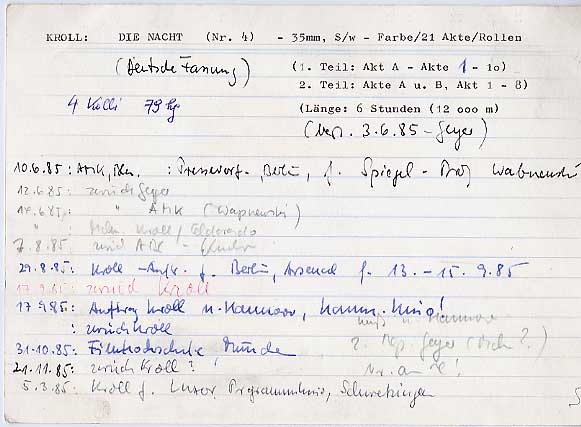 KROLL: DIE NACHT (Nr. 4) - 35mm, S/w - Farbe/21 Akte/Rollen
(Deutsche Fassung) (1. Teil: Akt A - Akte 1 - 10)
2. Teil: Akte A u. B, Akt 1 - 8)
4 Kolli 79 kg (Länge: 6 Stunden (12 000 m)
3.6.85 - Geyer)
10.6.85: AdK, Bln. : Pressevorf. Berlin, f. Spiegel - Prof Wapnewski
12.6.85: zurück Geyer
14.6.85: " AdK (Wapnewski)
" : Kroll / Eldorado
7.8.85: AdK -
29.8.85: Kroll - Auftr. f. Berlin, Arsenal f. 13. - 15. 9.85
17.9.85: zurück Kroll
17.9.85: Auftrag Kroll n. Hannover, Komm. Kino!
: zurück Kroll n. Hannover
31.10.85: Filmhochschule München Geyer
21.11.85: zurück Kroll?!
5.3.85: Kroll f. Luxor, Programmkino, Schwetzingen